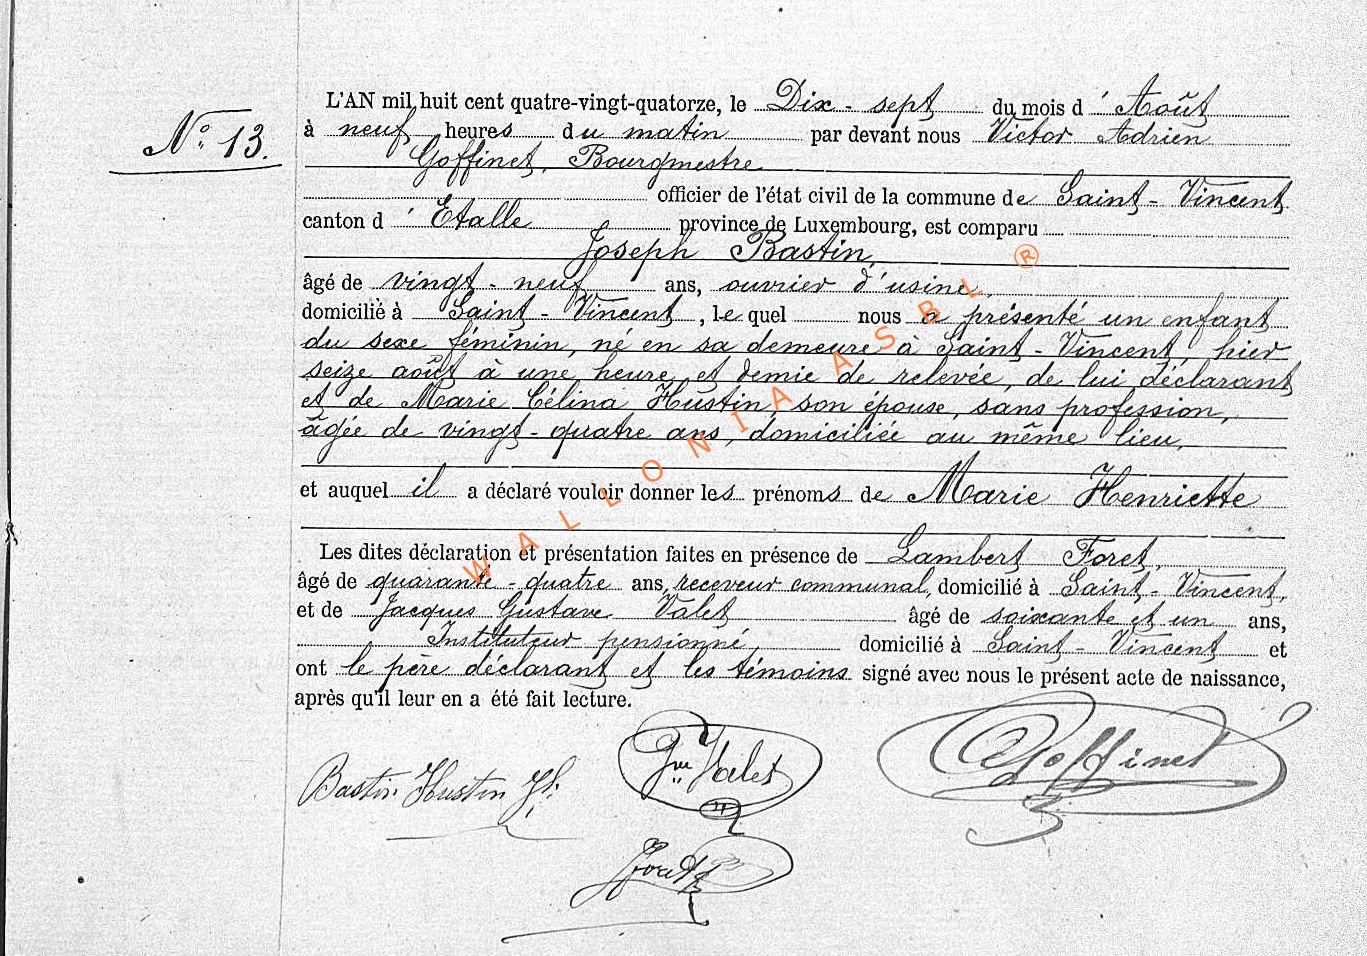 L'AN mil huit cent quatre-vingt-quatorze, le Dix-sept du mois d'Août
N° 13.
à neuf heures du matin par devant nous Victor Adrien
Goffinet, Bourgmestre
officier de l'état civil de la commune de Saint-Vincent
canton d'Etalle province de Luxembourg, est comparu
Joseph Bastin,
âgé de vingt-neuf ans, ouvrier d'usine,
domicilié à Saint-Vincent, lequel nous a présenté un enfant
du sexe féminin, né en sa demeure à Saint-Vincent, hier
seize août à une heure et demie de relevée, de lui déclarant
et de Marie Célina Hustin, son épouse, sans profession,
âgée de vingt-quatre ans, domiciliée au même lieu,
et auquel il a déclaré vouloir donner les prénoms de Marie Henriette
Les dites déclaration et présentation faites en présence de Lambert Foret,
âgé de quarante-quatre ans, receveur communal, domicilié à Saint-Vincent,
et de Jacques Gustave Valet âgé de soixante et un ans,
Instituteur pensionné, domicilié à Saint-Vincent et
ont le père déclarant et les témoins signé avec nous le présent acte de naissance,
après qu'il leur en a été fait lecture.
Bastin Hustin Jh: Gve Valet Goffinet
WALLONIA ASBL ®